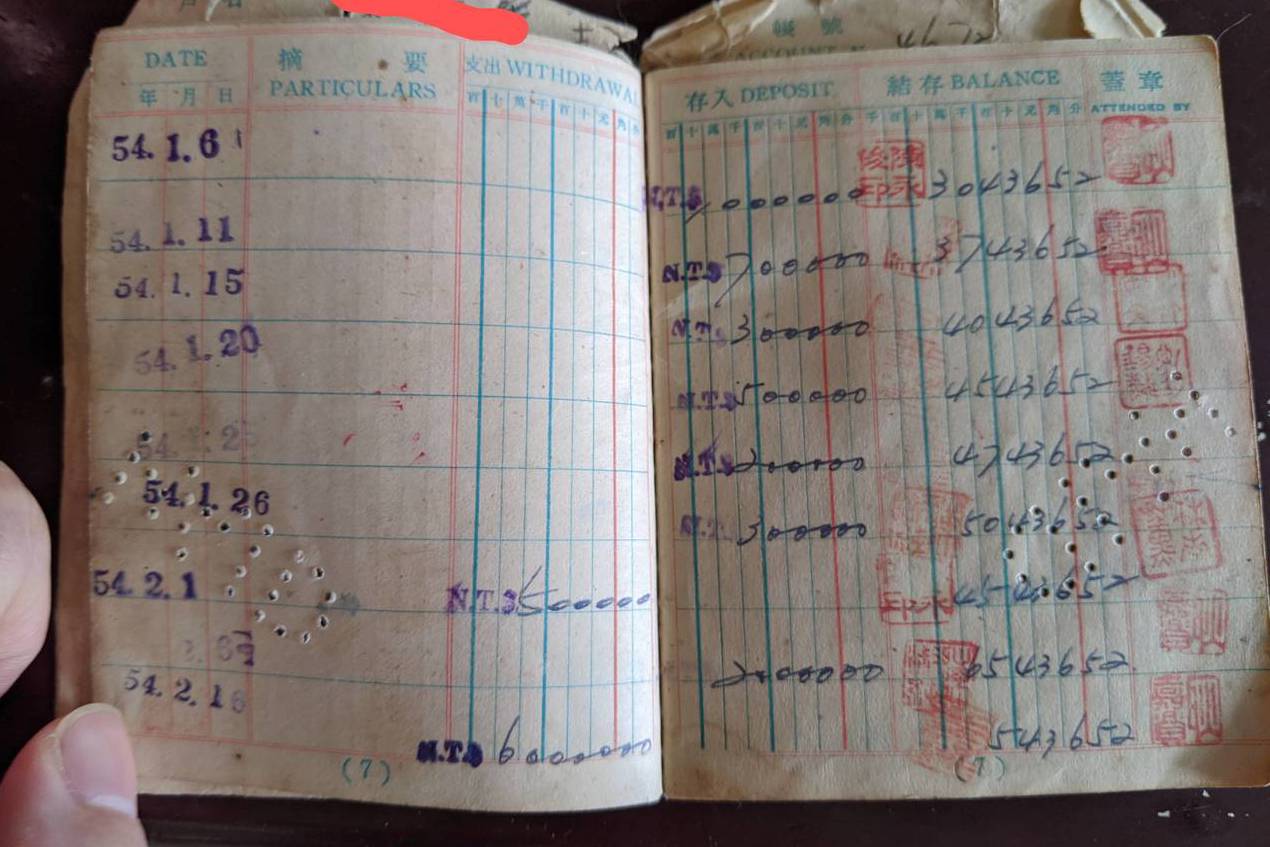 帳號
ACCOUNT
DATE
年 月 日
摘 要
PARTICULARS
支出 WITHDRAWAL
百 十 萬 千 百 十 元 角
存入 DEPOSIT
百 十 萬 千 百 十 元 角 分
結存 BALANCE
千 百 十 萬 千 百 十 元 角 分
蓋章
ATTENDED BY
54.1.6
N.T.$
3043652
54.1.11
N.T.$ 700000
3743652
54.1.15
N.T.$ 300000
4043652
54.1.20
N.T.$ 500000
4543652
N.T.$ 200000
4743652
54.1.26
N.T. 300000
5043652
54.2.1
N.T.$ 500000
4543652
2000000
6543652
54.2.16
N.T.$ 6000000
543652
(7)
(7)